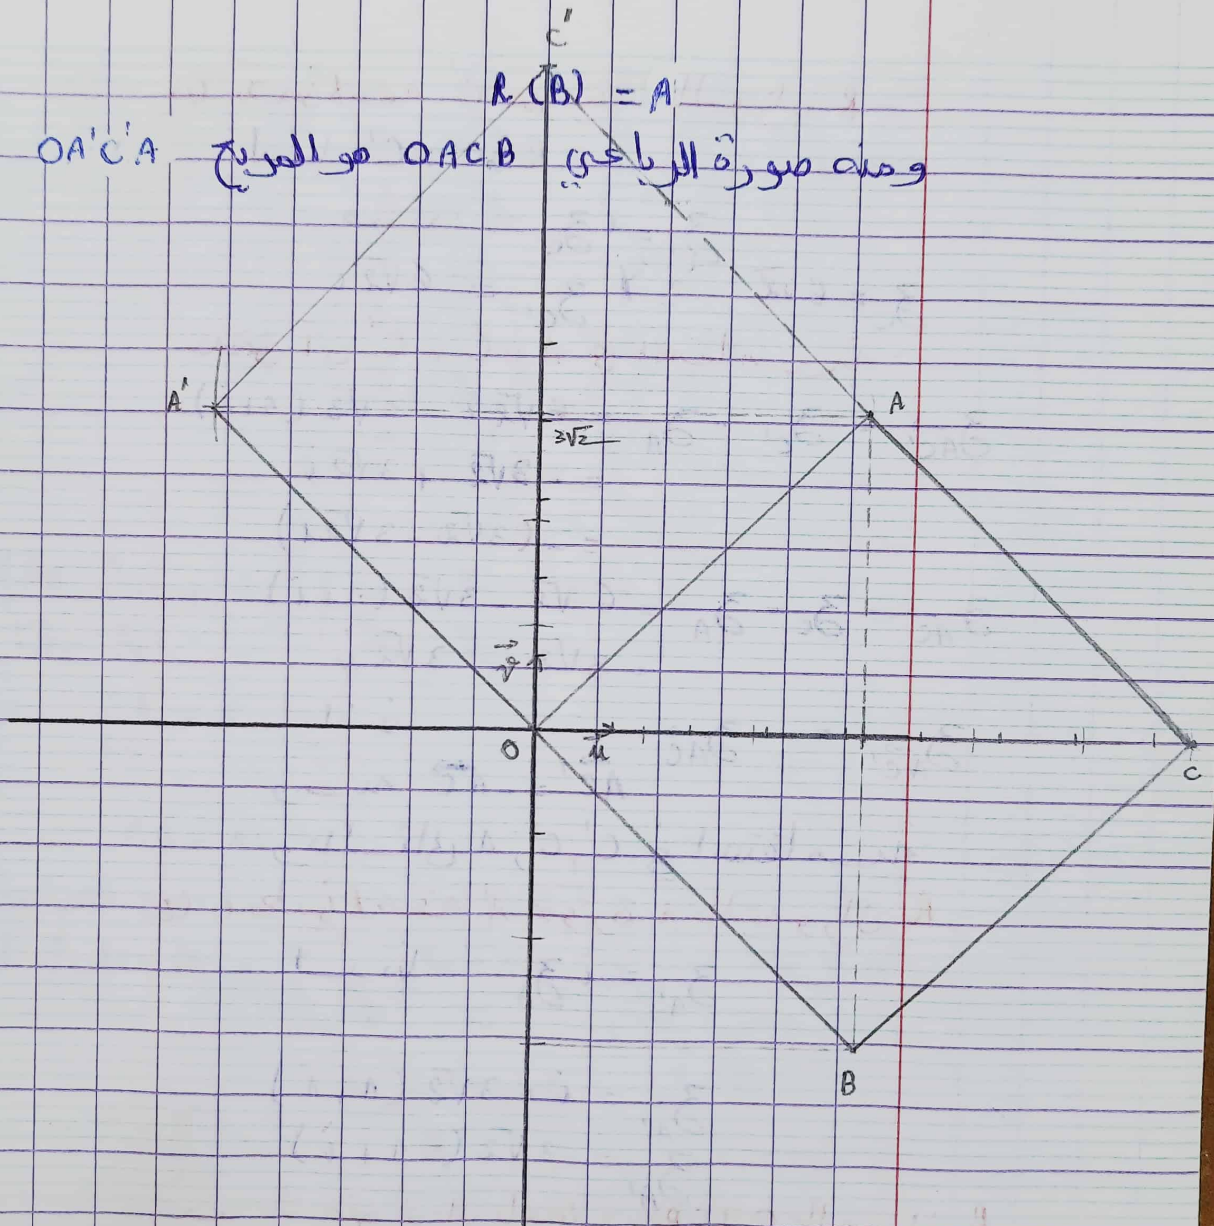 C"
R (B) = A
ومنه صورة الرباعي OACB هو المربع OA'C'A
A'
A
3√2
v
O
u
C
B